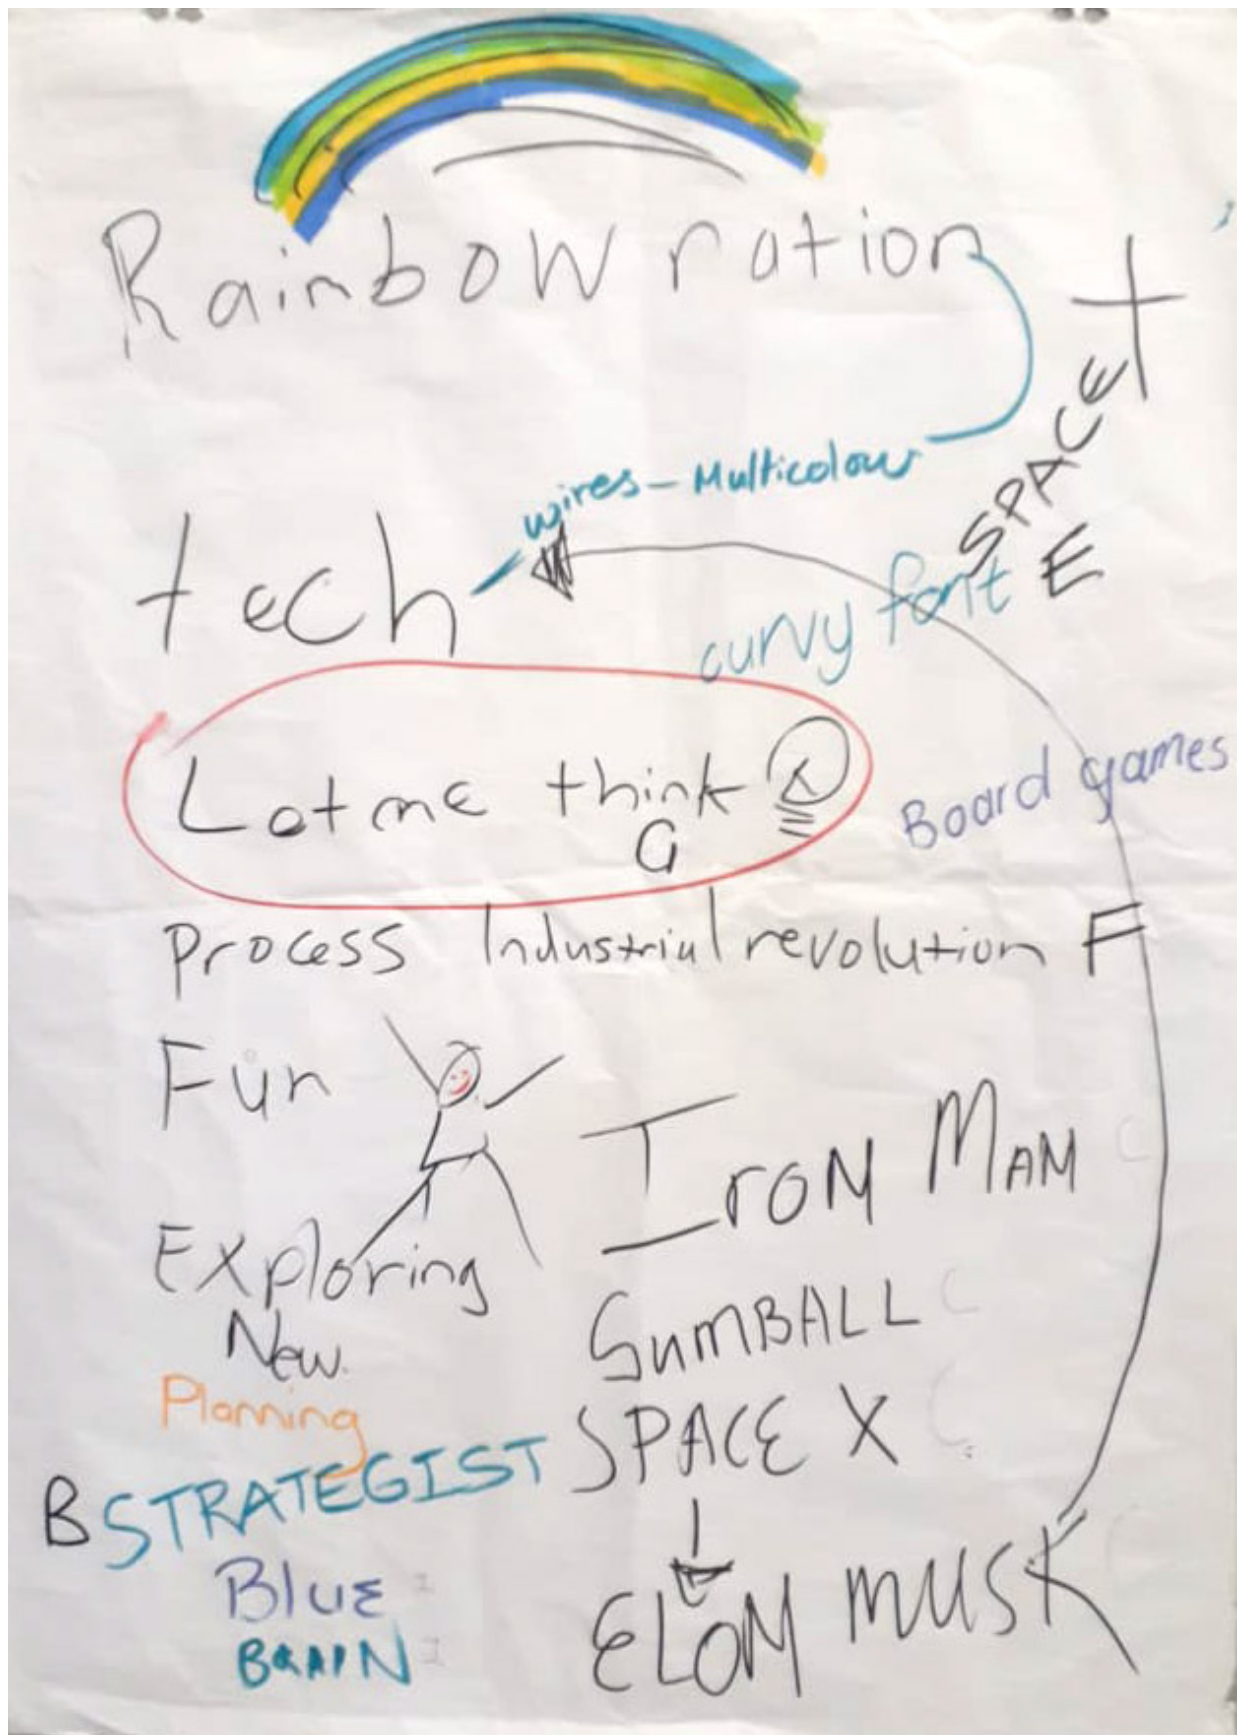 Rainbow nation
t
SPACE
wires - Multicolour
tech
curvy font E
Let me think
G
Board games
Process Industrial revolution F
Fun
IRON MAM
Exploring
New.
GUMBALL
Planning
SPACE X
B STRATEGIST
Blue
BRAIN
ELOM MUSK